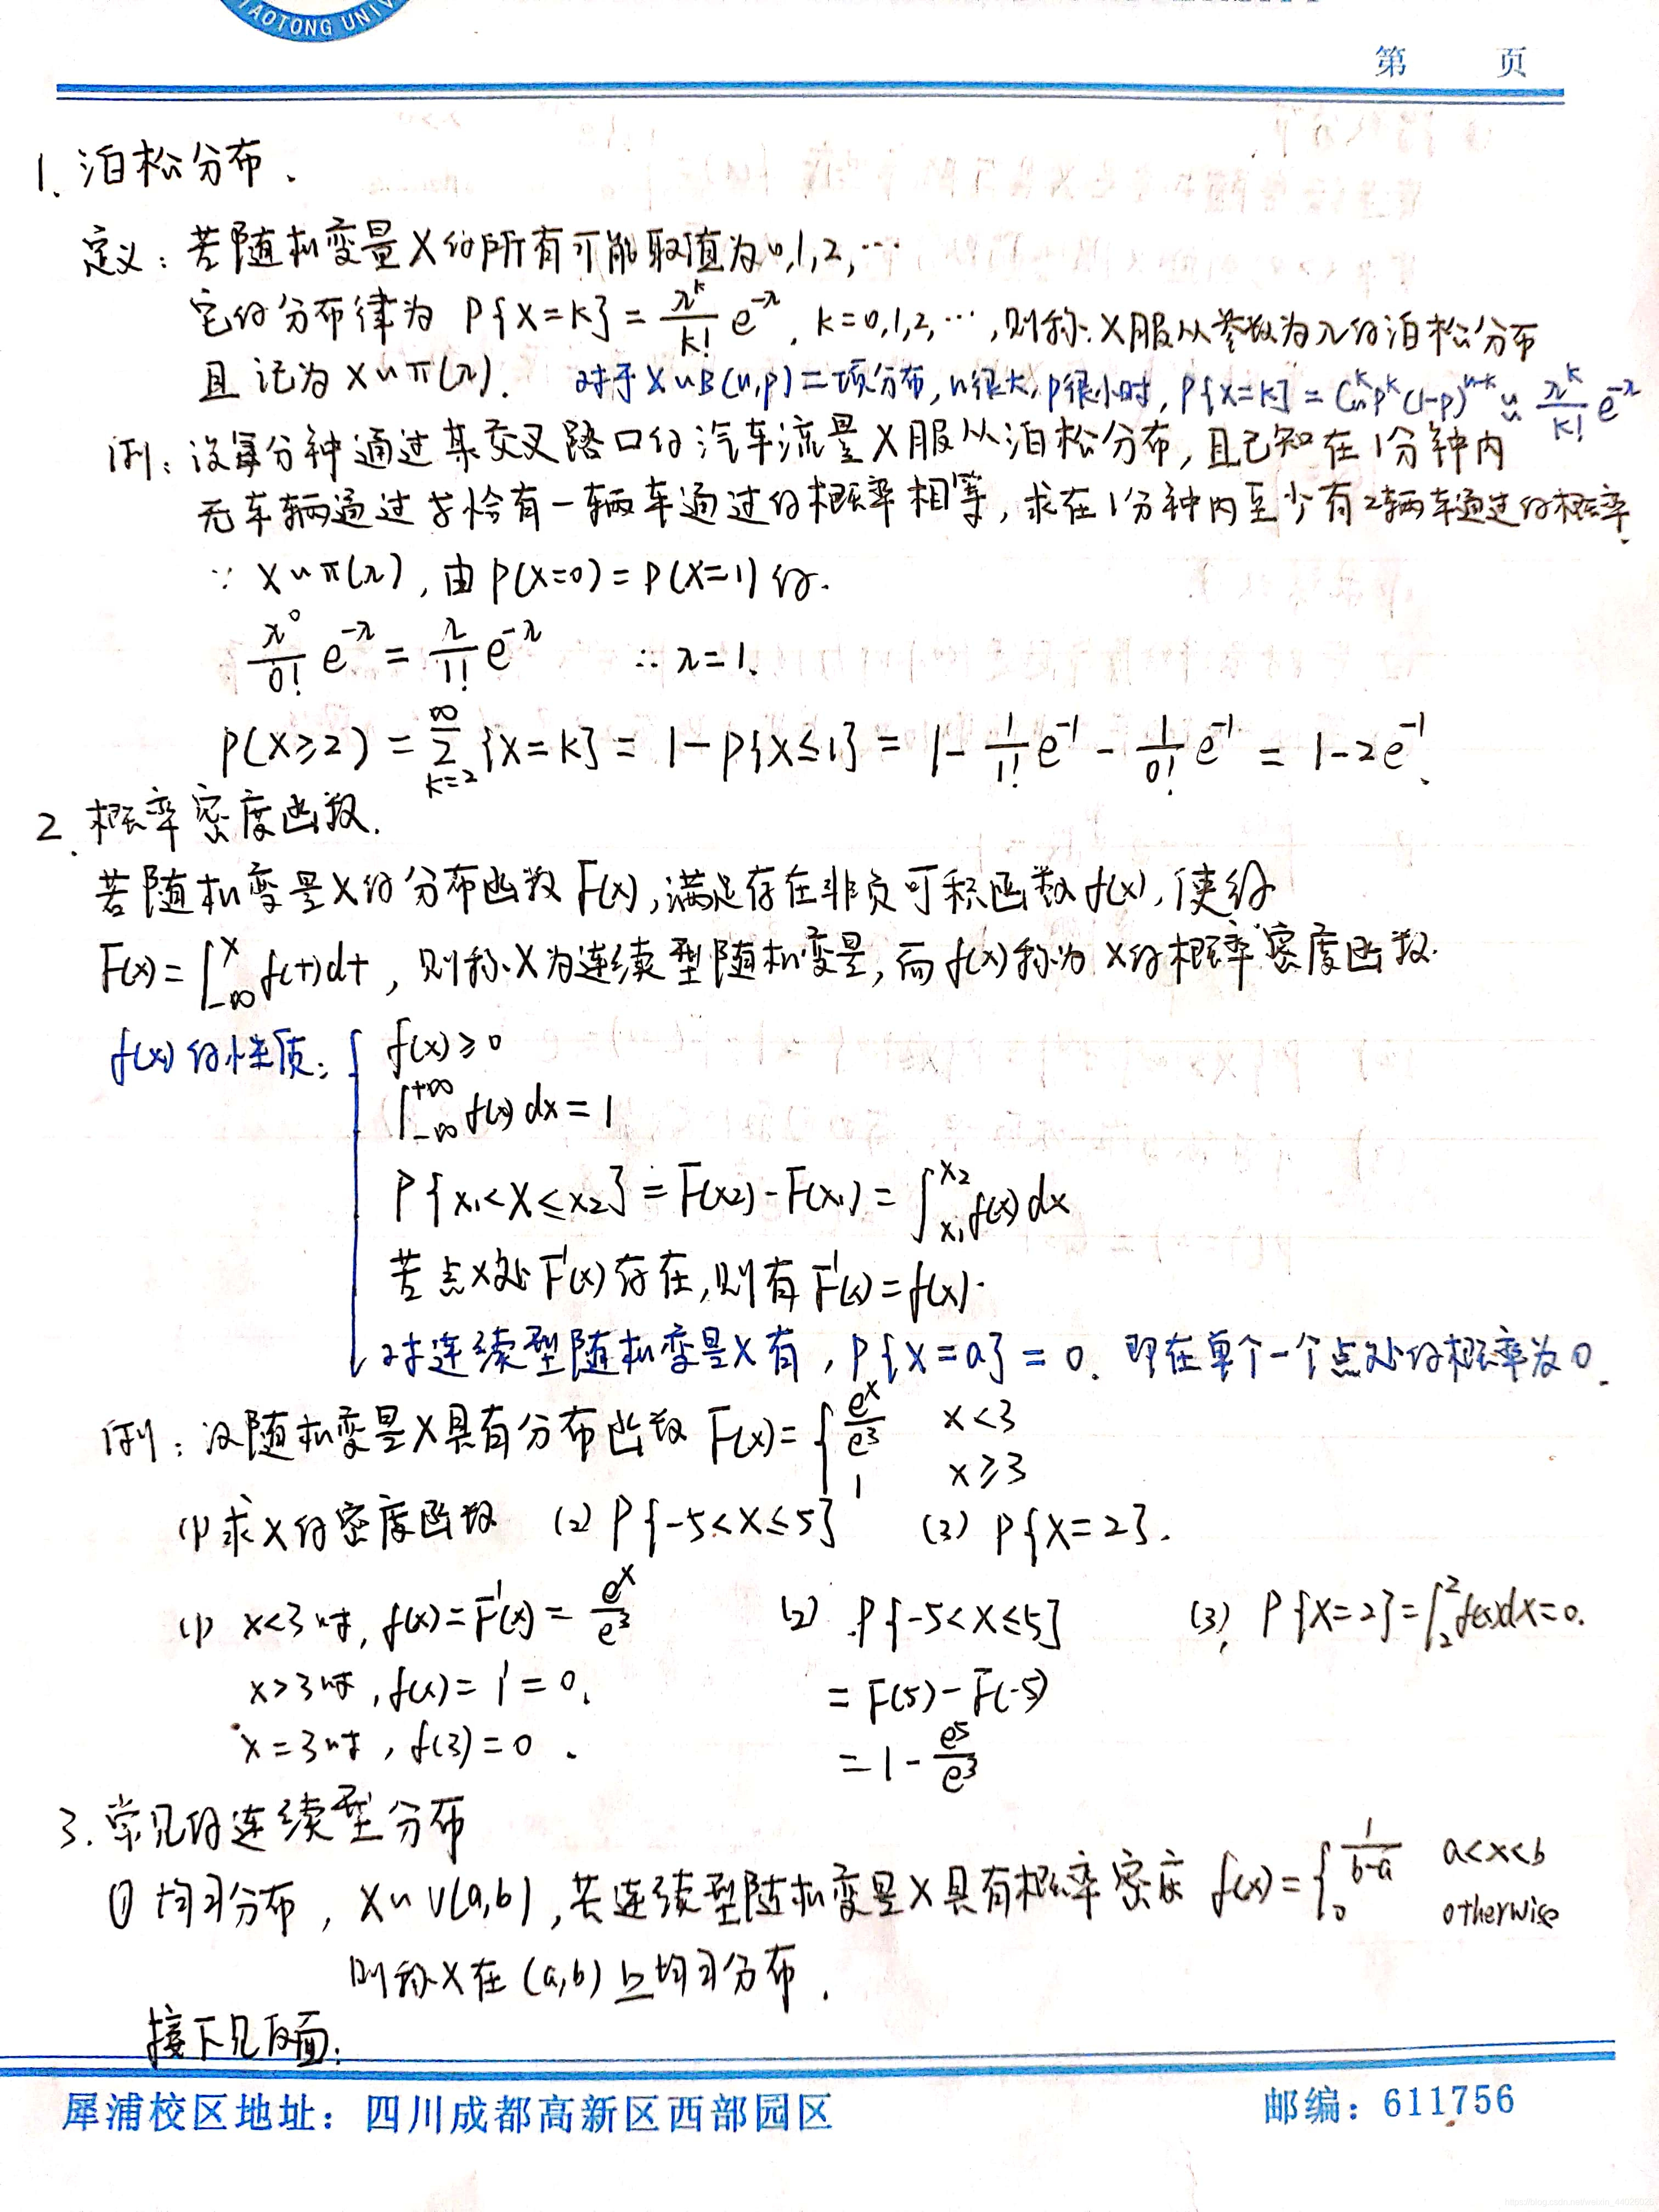 AOTONG UNIV
第 页
1. 泊松分布.
定义: 若随机变量X的所有可能取值为0,1,2,…
它的分布律为 P{X=k} = λ^k/k! e^{-λ}, k=0,1,2,…,则称X服从参数为λ的泊松分布
且记为 X~π(λ). 对于X~B(n,p)二项分布,n很大,p很小时, P{X=k} = C_n^k p^k (1-p)^{n-k} ≈ λ^k/k! e^{-λ}
例: 设每分钟通过某交叉路口的汽车流量X服从泊松分布,且已知在1分钟内
无车辆通过与恰有一辆车通过的概率相等,求在1分钟内至少有2辆车通过的概率.
∵ X~π(λ), 由 P(X=0) = P(X=1) 得.
λ^0/0! e^{-λ} = λ/1! e^{-λ} ∴ λ=1.
P(X≥2) = ∑_{k=2}^{∞} {X=k} = 1-P{X≤1} = 1 - 1/1! e^{-1} - 1/0! e^{-1} = 1-2e^{-1}.
2. 概率密度函数.
若随机变量X的分布函数F(x),满足存在非负可积函数f(x),使得
F(x) = ∫_{-∞}^{x} f(t)dt, 则称X为连续型随机变量,而f(x)称为X的概率密度函数.
f(x)的性质: { f(x)≥0
∫_{-∞}^{+∞} f(x)dx = 1
P{x1<X≤x2} = F(x2)-F(x1) = ∫_{x1}^{x2} f(x)dx
若点x处F'(x)存在,则有F'(x)=f(x).
对连续型随机变量X有, P{X=a} = 0. 即在单个一个点处的概率为0.
例: 设随机变量X具有分布函数 F(x) = { e^x/e^3 x<3
1 x≥3
(1)求X的密度函数 (2) P{-5<X≤5} (3) P{X=2}.
(1) x<3时, f(x)=F'(x) = e^x/e^3 (2) P{-5<X≤5} (3), P{X=2} = ∫_2^2 f(x)dx=0.
x>3时, f(x) = 1' = 0. = F(5)-F(-5)
x=3时, f(3)=0. = 1 - e^5/e^3
3. 常见的连续型分布
① 均匀分布, X~U(a,b), 若连续型随机变量X具有概率密度 f(x) = { 1/(b-a) a<x<b
0 otherwise
则称X在(a,b)上均匀分布.
接下见反面:
犀浦校区地址: 四川成都高新区西部园区 邮编: 611756